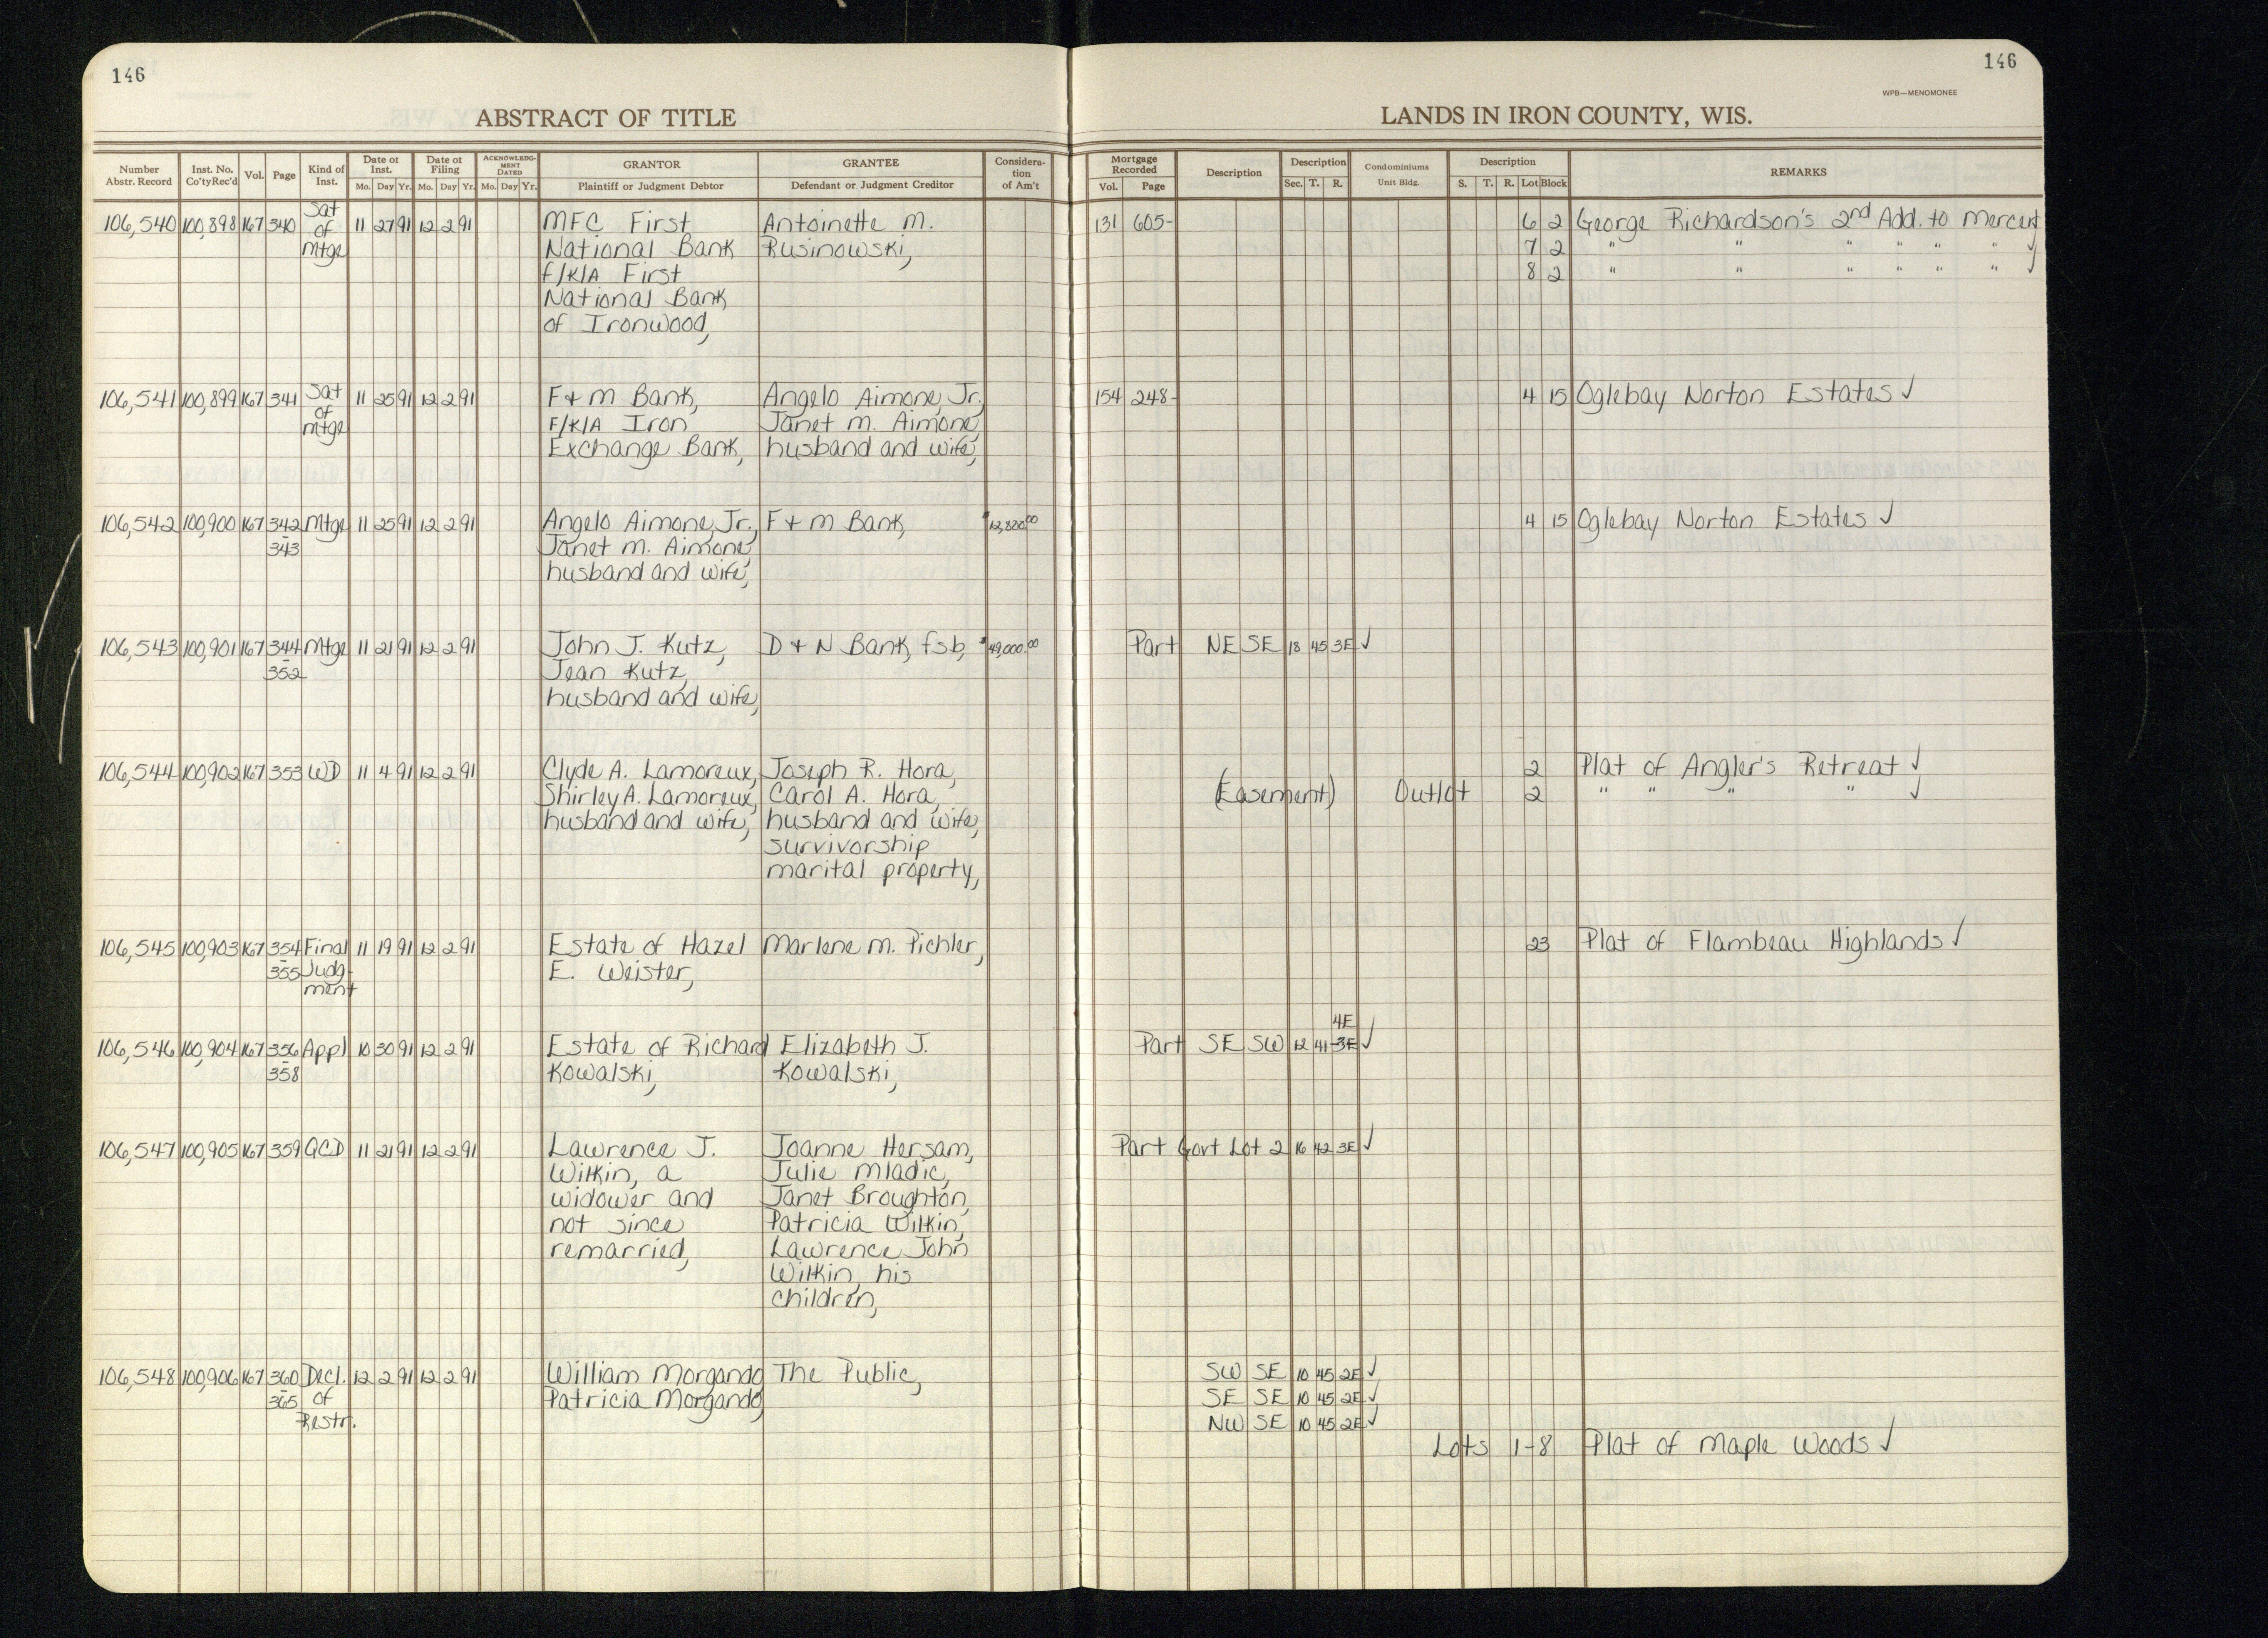 146
146
WPB—MENOMONEE
ABSTRACT OF TITLE
LANDS IN IRON COUNTY, WIS.
Number Abstr. Record Inst. No. Co'tyRec'd Vol. Page Kind of Inst. Date of Inst. Mo. Day Yr. Date of Filing Mo. Day Yr. ACKNOWLEDGMENT DATED Mo. Day Yr. GRANTOR Plaintiff or Judgment Debtor GRANTEE Defendant or Judgment Creditor Consideration of Am't Mortgage Recorded Vol. Page Description Description Sec. T. R. Condominiums Unit Bldg. Description S. T. R. Lot Block REMARKS
106,540 100,898 167 340 Sat of Mtge 11 27 91 12 2 91 MFC First Antoinette M. 131 605- 6 2 George Richardson's 2nd Add. to Mercer
National Bank Rusinowski, 7 2 " " " " " " ✓
f/K/A First 8 2 " " " " " " ✓
National Bank
of Ironwood,
106,541 100,899 167 341 Sat of Mtge 11 25 91 12 2 91 F & M Bank, Angelo Aimone, Jr., 154 248- 4 15 Oglebay Norton Estates ✓
F/K/A Iron Janet M. Aimone,
Exchange Bank, husband and wife,
106,542 100,900 167 342 - 343 Mtge 11 25 91 12 2 91 Angelo Aimone, Jr., F & M Bank, $12,800.00 4 15 Oglebay Norton Estates ✓
Janet M. Aimone,
husband and wife,
106,543 100,901 167 344 - 352 Mtge 11 21 91 12 2 91 John J. Kutz, D & N Bank, fsb, $49,000.00 Part NE SE 18 45 3E ✓
Jean Kutz,
husband and wife,
106,544 100,902 167 353 WD 11 4 91 12 2 91 Clyde A. Lamoreux, Joseph R. Hora, 2 Plat of Angler's Retreat ✓
Shirley A. Lamoreux, Carol A. Hora, (Easement) Outlot 2 " " " " ✓
husband and wife, husband and wife,
survivorship
marital property,
106,545 100,903 167 354 - 355 Final Judgment 11 19 91 12 2 91 Estate of Hazel Marlene M. Pichler, 23 Plat of Flambeau Highlands ✓
E. Weister,
4E
106,546 100,904 167 356 - 358 Appl 10 30 91 12 2 91 Estate of Richard Elizabeth J. Part SE SW 12 41 3E ✓
Kowalski, Kowalski,
106,547 100,905 167 359 QCD 11 21 91 12 2 91 Lawrence J. Joanne Hersam, Part Govt Lot 2 16 42 3E ✓
Wilkin, a Julie Mladic,
widower and Janet Broughton,
not since Patricia Wilkin,
remarried, Lawrence John
Wilkin, his
children,
106,548 100,906 167 360 - 365 Decl. of Restr. 12 2 91 12 2 91 William Morgando The Public, SW SE 10 45 2E ✓
Patricia Morgando, SE SE 10 45 2E ✓
NW SE 10 45 2E ✓
Lots 1-8 Plat of Maple Woods ✓